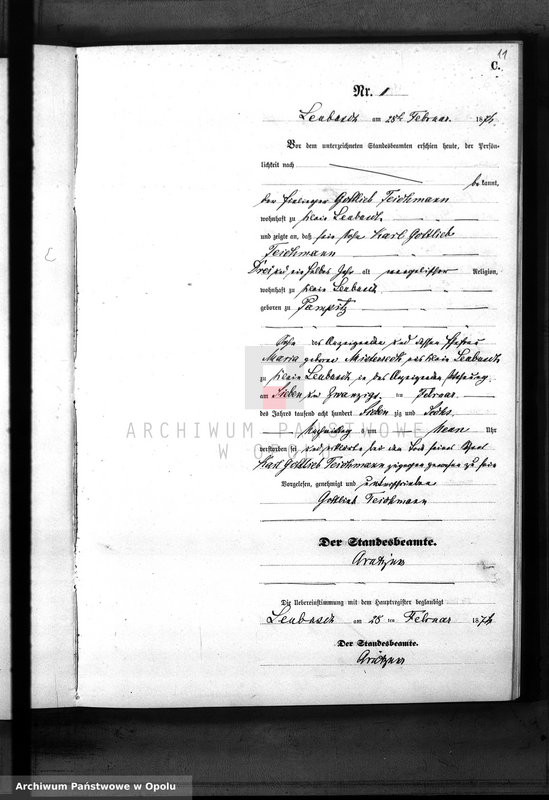 11
C.
Nr. 1
Leubusch am 28ten Februar 1876.
Vor dem unterzeichneten Standesbeamten erschien heute, der Persön-
lichkeit nach
bekannt,
der Einlieger Gottlieb Teichmann
wohnhaft zu Klein Leubusch
und zeigte an, daß sein Sohn Karl Gottlieb
Teichmann
Drei und ein halbes Jahr alt evangelischer Religion,
wohnhaft zu Klein Leubusch
geboren zu Pampitz
Sohn des Anzeigenden und dessen Ehefrau
Maria geborne aus Klein Leubusch
zu Klein Leubusch in des Anzeigenden Wohnung
am Sieben und Zwanzigs ten Februar
des Jahres tausend acht hundert Sieben zig und Sechs
Nachmittag um Neun Uhr
verstorben sei und bei dem Tode seines Sohnes
Karl Gottlieb Teichmann zugegen gewesen zu sein
Vorgelesen, genehmigt und unterschrieben
Gottlieb Teichmann
Der Standesbeamte.
Die Uebereinstimmung mit dem Hauptregister beglaubigt
Leubusch am 28 ten Februar 1876
Der Standesbeamte.
ARCHIWUM PAŃSTWOWE
W OPOLU
Archiwum Państwowe w Opolu